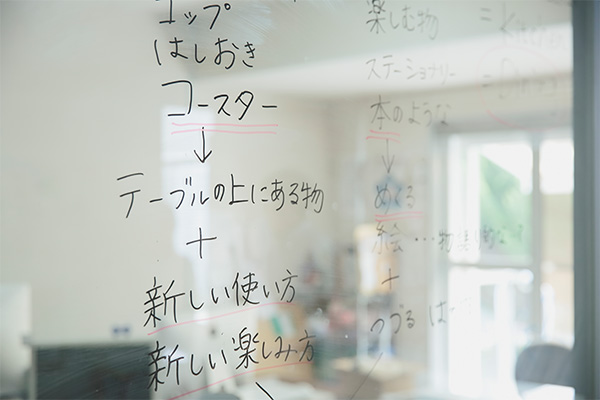 コップ
はしおき
コースター
↓
テーブルの上にある物
+
新しい使い方
新しい楽しみ方
楽しむ物
ステーショナリー
本のような
↓
めくる
絵…
+
つづる